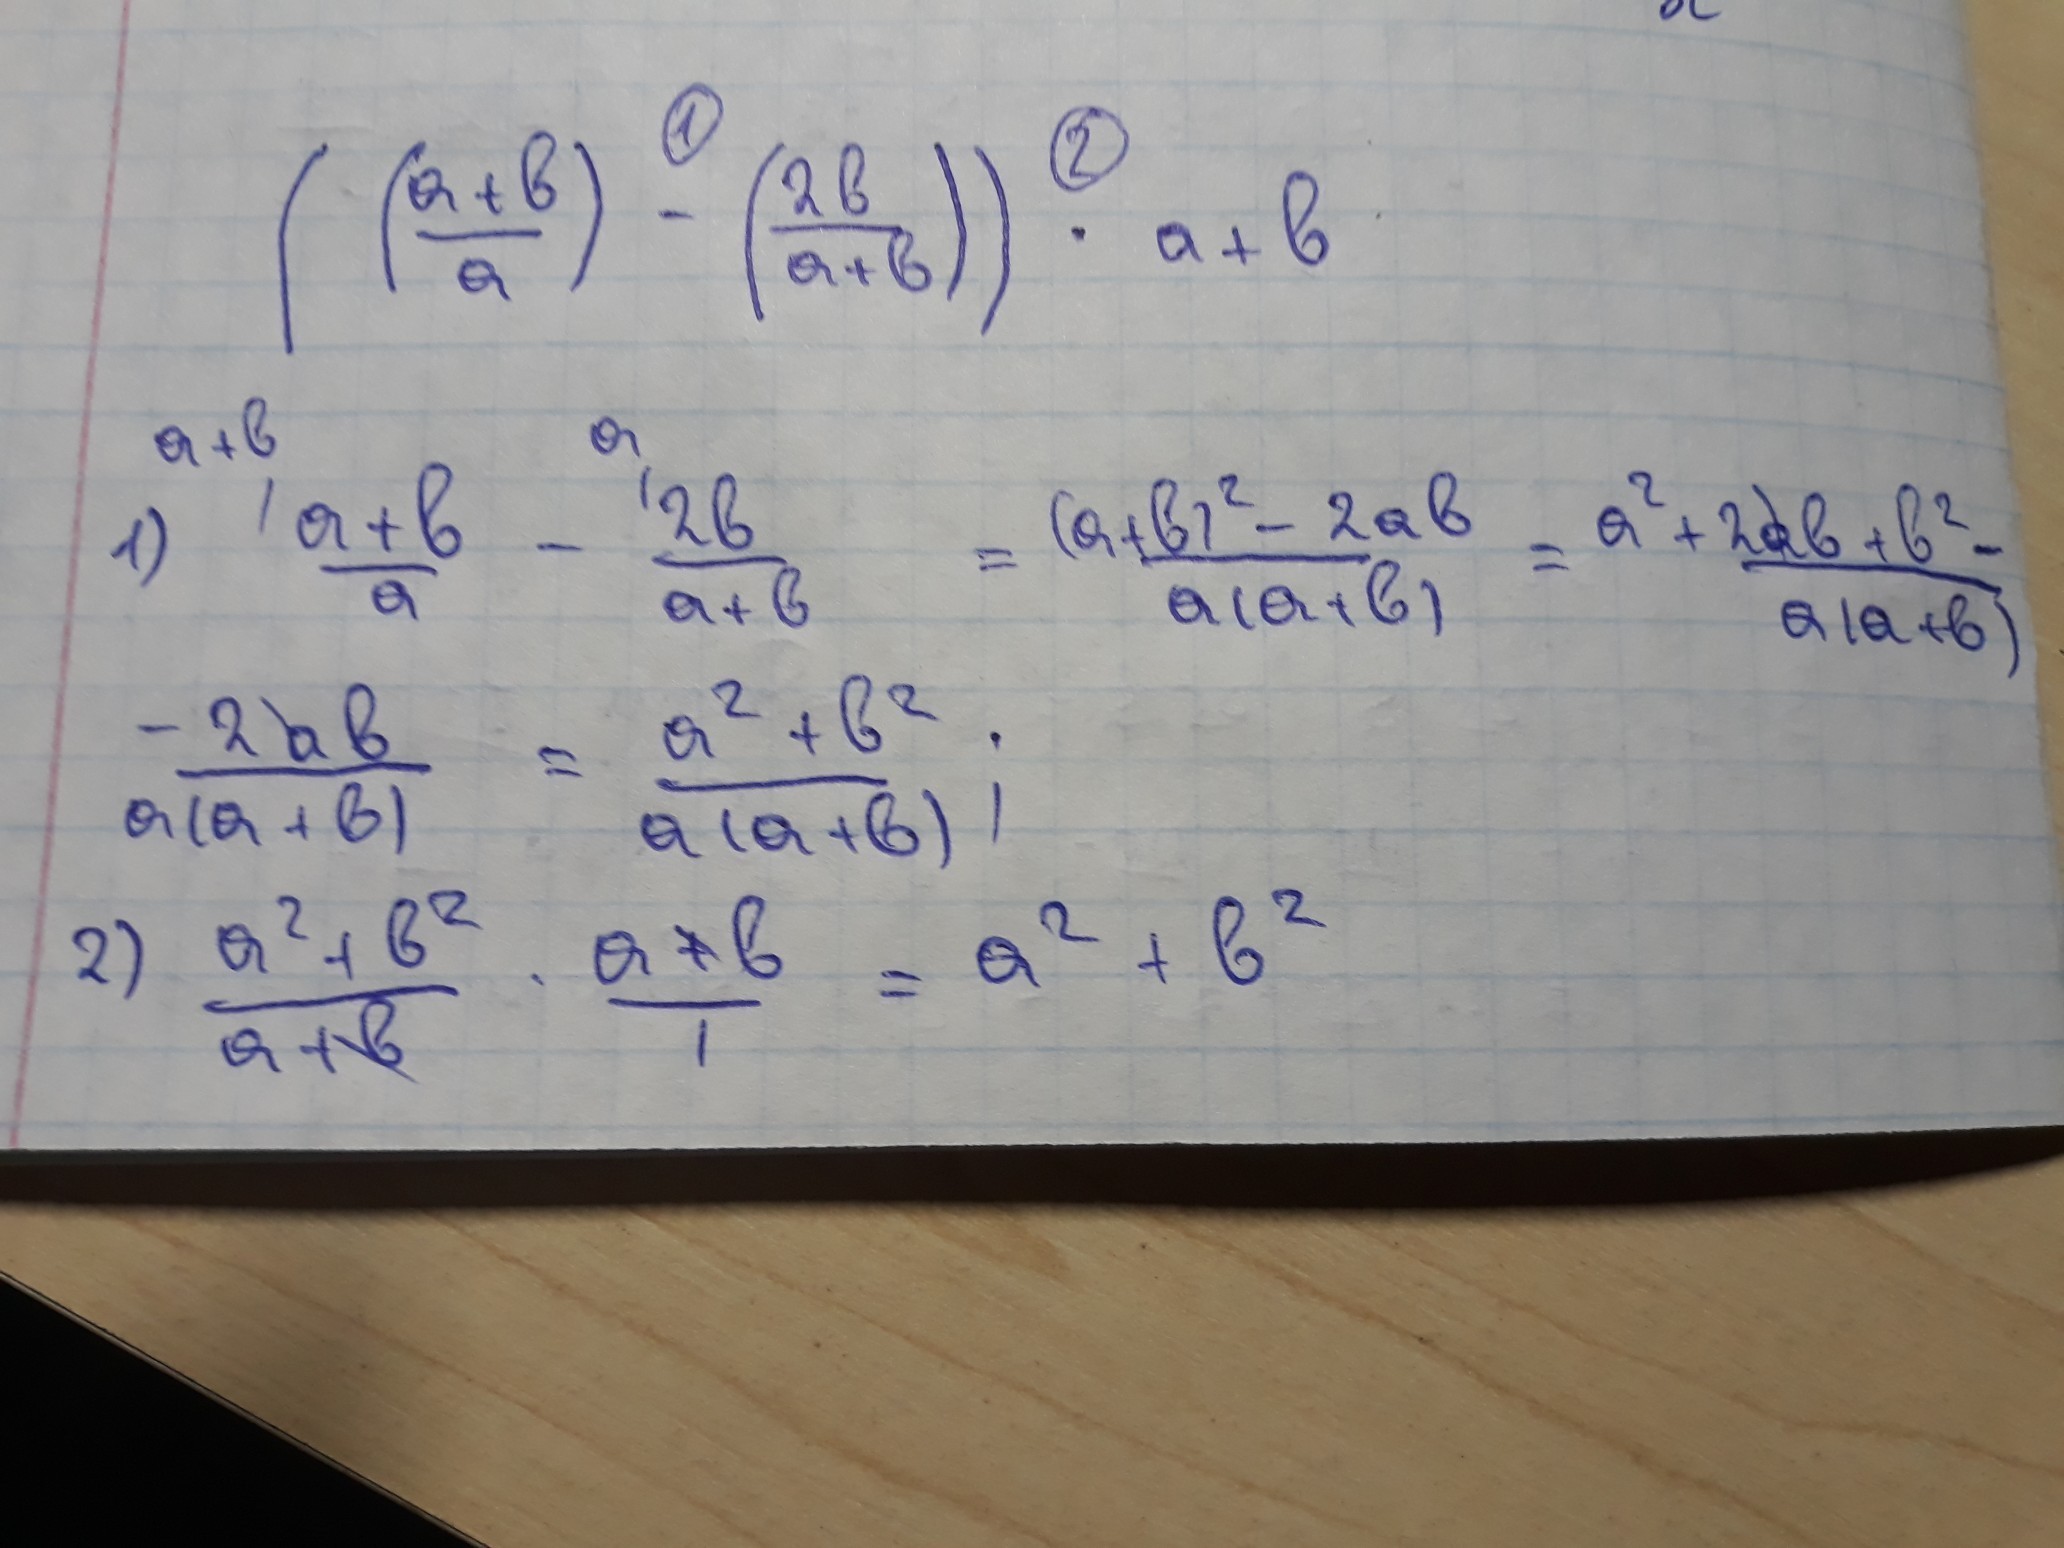 ① ②
((a+b)/a) - (2b/(a+b))) · a+b
a+b a
1) (a+b)/a - 2b/(a+b) = ((a+b)² - 2ab)/(a(a+b)) = (a² + 2ab + b² -)/(a(a+b))
(-2ab)/(a(a+b)) = (a² + b²)/(a(a+b)) ;
2) (a² + b²)/(a+b) · (a+b)/1 = a² + b²